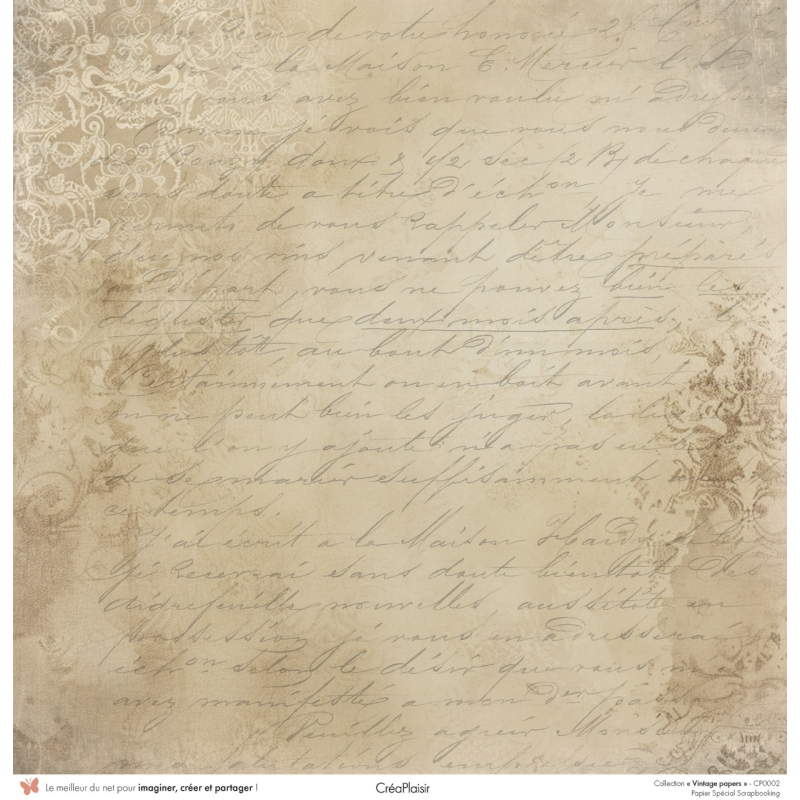 de votre honorée 2
à la Maison E. Mercier
vous avez bien voulu m'adresser
Comme je vois que vous nous
Rouges doux & 1/2 sec (2 B) de chaque
sans doute a titre d'échon, je me
permets de vous rappeler Monsieur,
que nos vins venant d'être préparés
au départ, vous ne pouvez bien les
déguster que deux mois après,
plus tôt, au bout d'un mois,
Certainement on en boit avant
on ne peut bien les juger, la
que l'on y ajoute n'a pas eu le
de se marier suffisamment
ce temps.
J'ai écrit a la Maison de
je recevrai sans doute bientôt des
nouvelles, aussitôt en
possession je vous en adresserai
échon selon le désir que vous m'
avez manifesté a mon der
Veuillez agréer Monsieur
salutations empressées
Le meilleur du net pour imaginer, créer et partager !
CréaPlaisir
Collection « Vintage papers » - CP0002
Papier Spécial Scrapbooking